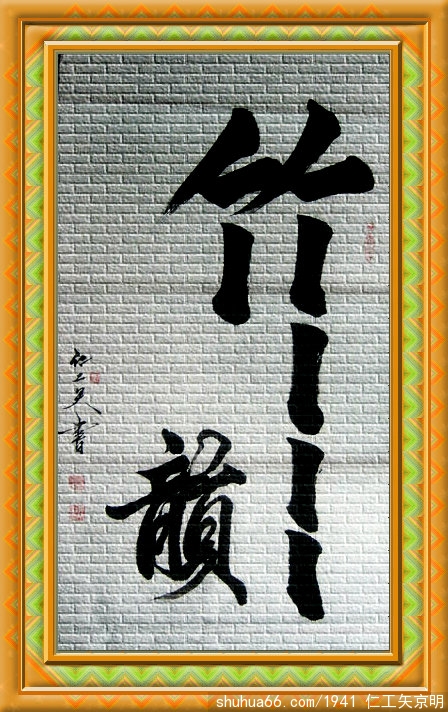 竹韻
仁工矢書
shuhua66.com/1941 仁工矢京明